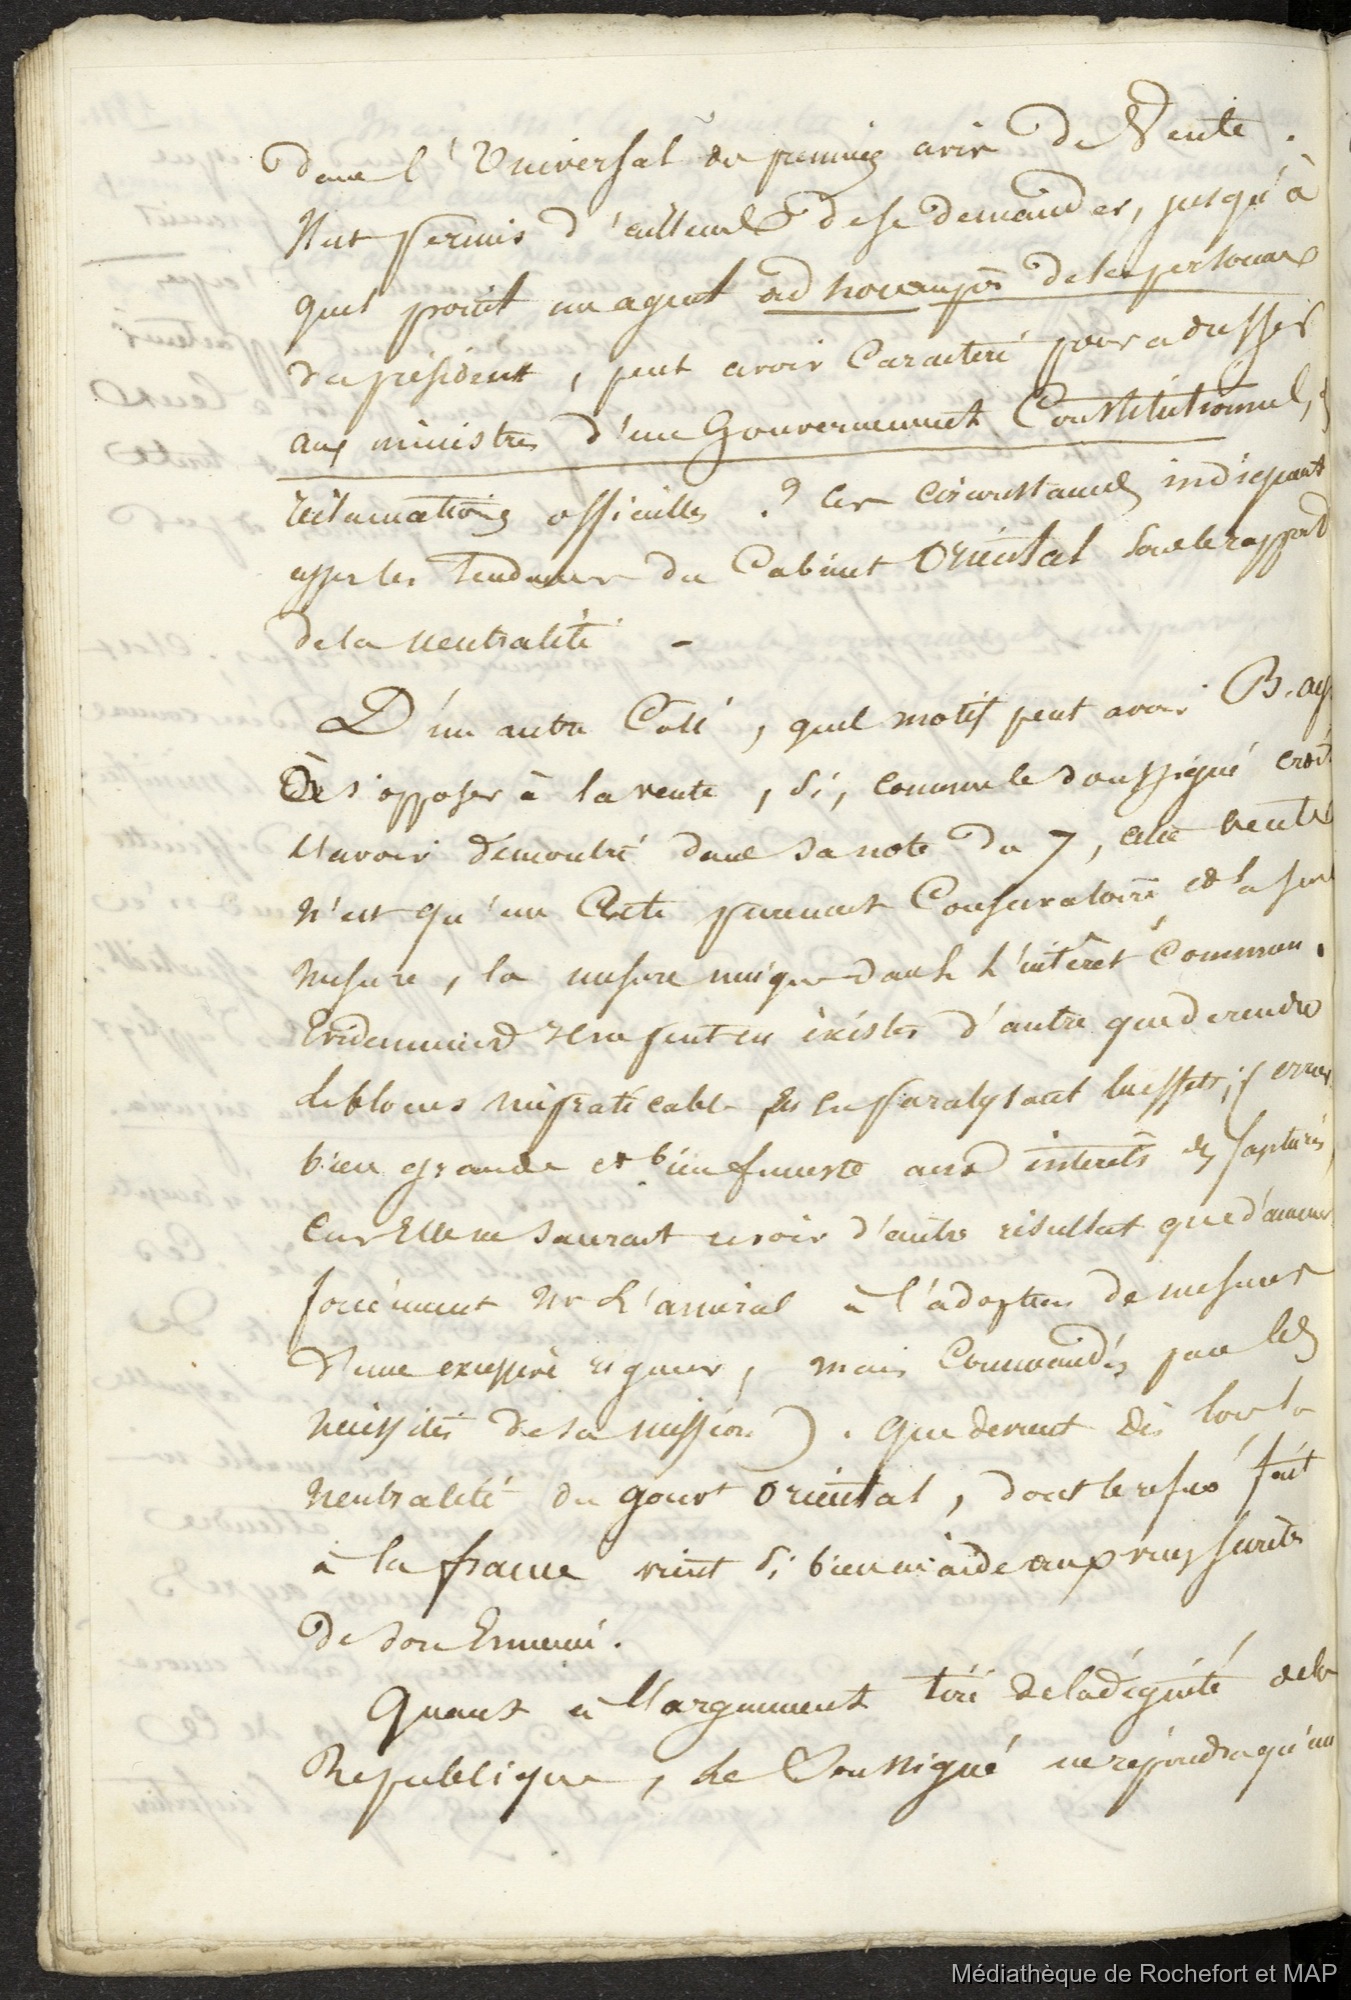 dans l'Universal du premier avis de Vente.
Il est permis d'ailleurs de se demander, jusqu'à
quel point un agent ad hoc auprès de la personne
du président, peut avoir Caractère pour adresser
aux ministres d'un Gouvernement Constitutionnel,
réclamations officielles. ? Ces circonstances indiquent
assez les tendances du Cabinet Oriental sous le rapport
de la neutralité -
D'un autre Côté, quel motif peut avoir B. ay
De s'opposer à la vente, si, comme le soussigné croit
l'avoir démontré dans sa note du 7, cette vente
n'est qu'un Acte purement Conservatoire et la seul
mesure, la mesure unique dans l'intérêt Commun.
Evidemment il ne peut en exister d'autre que de rendre
le blocus impraticable en en paralysant les effets; (erreur
bien grande et bien funeste aux intérêts des Capturés,
Car Elle ne saurait avoir d'autre résultat que d'amener
forcément Mr L'amiral à l'adoption de mesures
d'une excessive rigueur, mais Commandés par les
nécessités de sa mission). Que devient dès lors la
neutralité du gouvt Oriental, dont le refus fait
à la france vient si bien en aide aux pressants
de son Ennemi.
Quant à l'argument tiré de la dignité de la
République, Le Soussigné ne répondra qu'un
Médiathèque de Rochefort et MAP